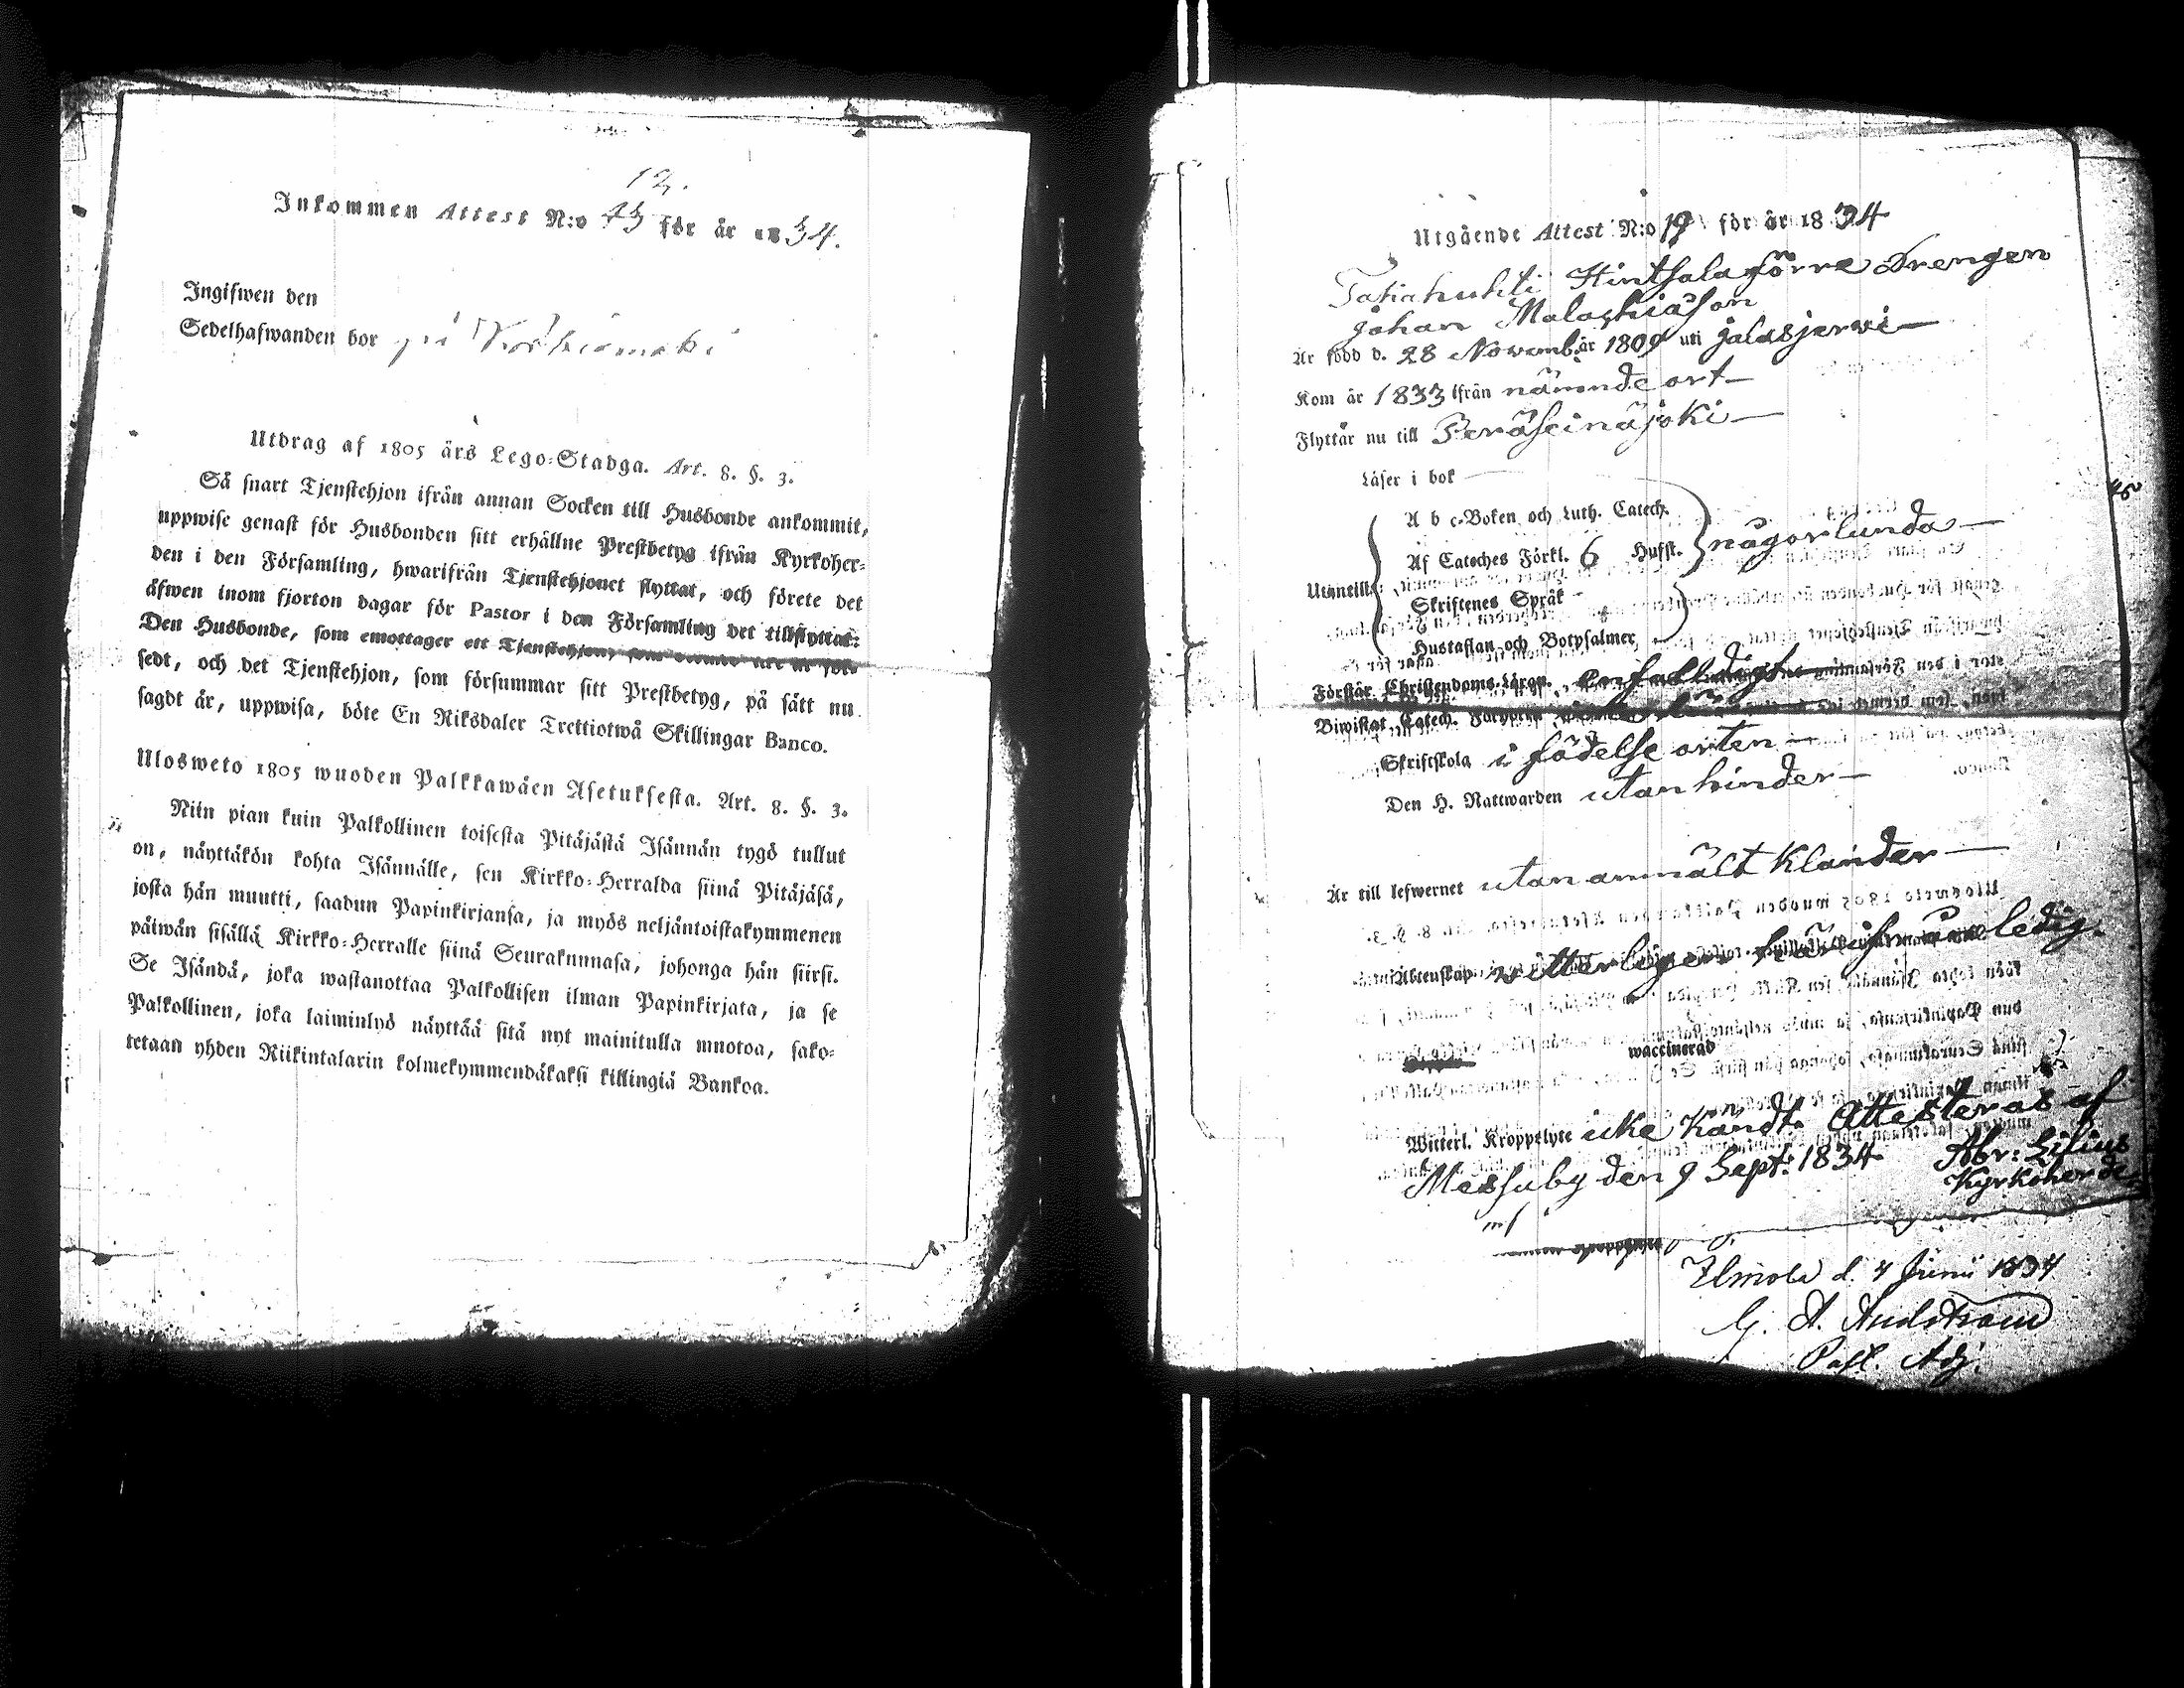 12.
Inkommen Attest N:o 43 för år 1834.
Ingifwen den
Sedelhafwanden bor på
Utdrag af 1805 års Lego-Stadga. Art. 8. §. 3.
Så snart Tjenstehjon ifrån annan Socken till Husbonde ankommit,
uppwise genast för Husbonden sitt erhållne Prestbetyg ifrån Kyrkoher-
den i den Församling, hwarifrån Tjenstehjonet flyttat, och förete det
äfwen inom fjorton dagar för Pastor i den Församling det tillflyttat:
Den Husbonde, som emottager ett Tjenstehjon, som
sedt, och det Tjenstehjon, som försummar sitt Prestbetyg, på sätt nu
sagdt är, uppwisa, böte En Riksdaler Trettiotwå Skillingar Banco.
Ulosweto 1805 wuoden Palkkawäen Asetuksesta. Art. 8. §. 3.
Niin pian kuin Palkollinen toisesta Pitäjästä Isännän tygö tullut
on, näyttäkön kohta Isännälle, sen Kirkko-Herralda siinä Pitäjäsä,
josta hän muutti, saadun Papinkirjansa, ja myös neljäntoistakymmenen
päiwän sisällä Kirkko-Herralle siinä Seurakunnasa, johonga hän siirsi.
Se Isändä, joka wastanottaa Palkollisen ilman Papinkirjata, ja se
Palkollinen, joka laiminlyö näyttää sitä nyt mainitulla muotoa, sako-
tetaan yhden Riikintalarin kolmekymmendäkaksi killingiä Bankoa.
Utgående Attest N:o 19 för år 1834
Takahuhti Hintsala förre Drengen
Johan Malachiasson
Är född d. 28 Novemb. år 1809 uti Jalasjerwi
Kom år 1833 ifrån nämnde ort
Flyttar nu till Peräseinäjoki
Läser i bok
A b c-Boken och Luth. Catech.
Af Cateches Förkl. 6 Hufst. någorlunda
Utantill:
Skriftenes Språk
Hustaflan och Botpsalmer
Förstår Christendoms-Läran enfaldigt
Biwistat Catech. Förhören
Skriftskola i födelse orten
Den H. Nattwarden utan hinder
Är till lefwernet utan anmält klander
Till Äktenskap witterligen härifrån ledig.
waccinerad
Witterl. Kroppslyte icke kändt. Attesteras af
Messuby den 9 Sept: 1834 Abr: Lilius
Kyrkoherde
Ilmola d. 4 Junii 1834
Past. Adj.